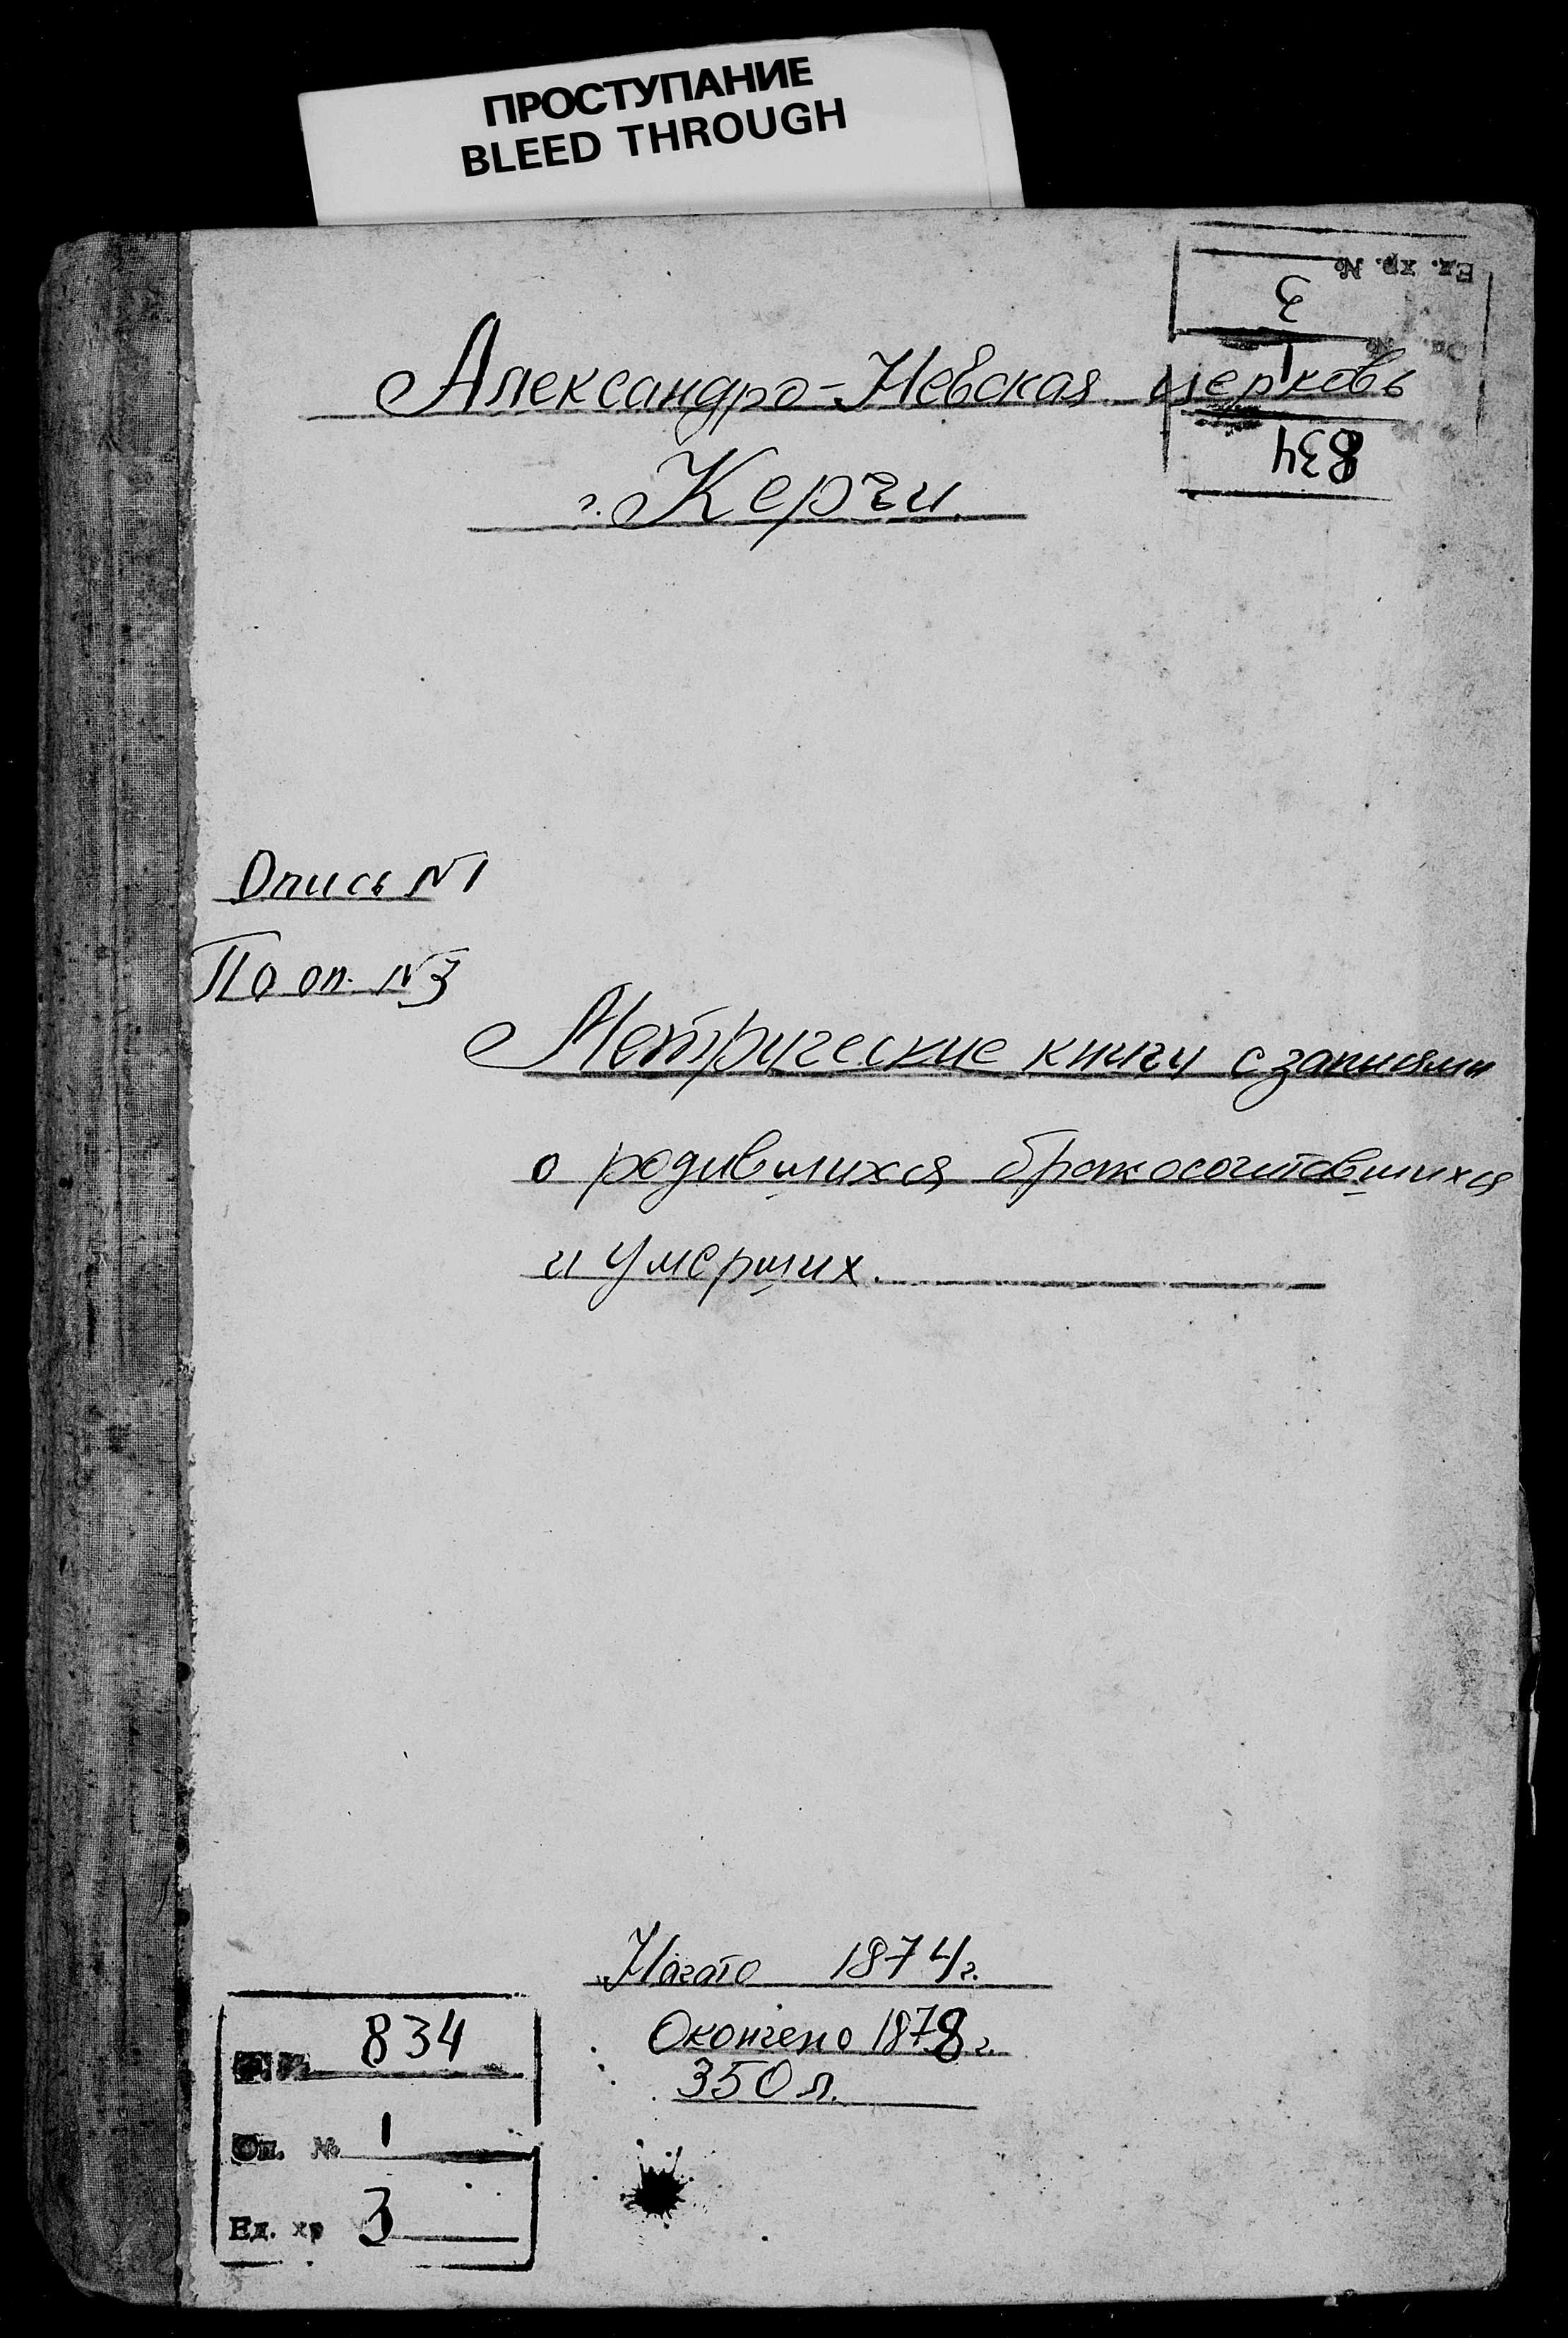 ПРОСТУПАНИЕ
BLEED THROUGH
Ед. хр. №
3
Оп. №
1
834
Александро-Невская церковь
г. Керчи.
Опись №1
По оп. №3
Метрические книги с записями
о родившихся бракосочетавшихся
и умерших.
Начато 1874 г.
Окончено 1878 г.
350 л.
834
Оп. № 1
Ед. хр 3